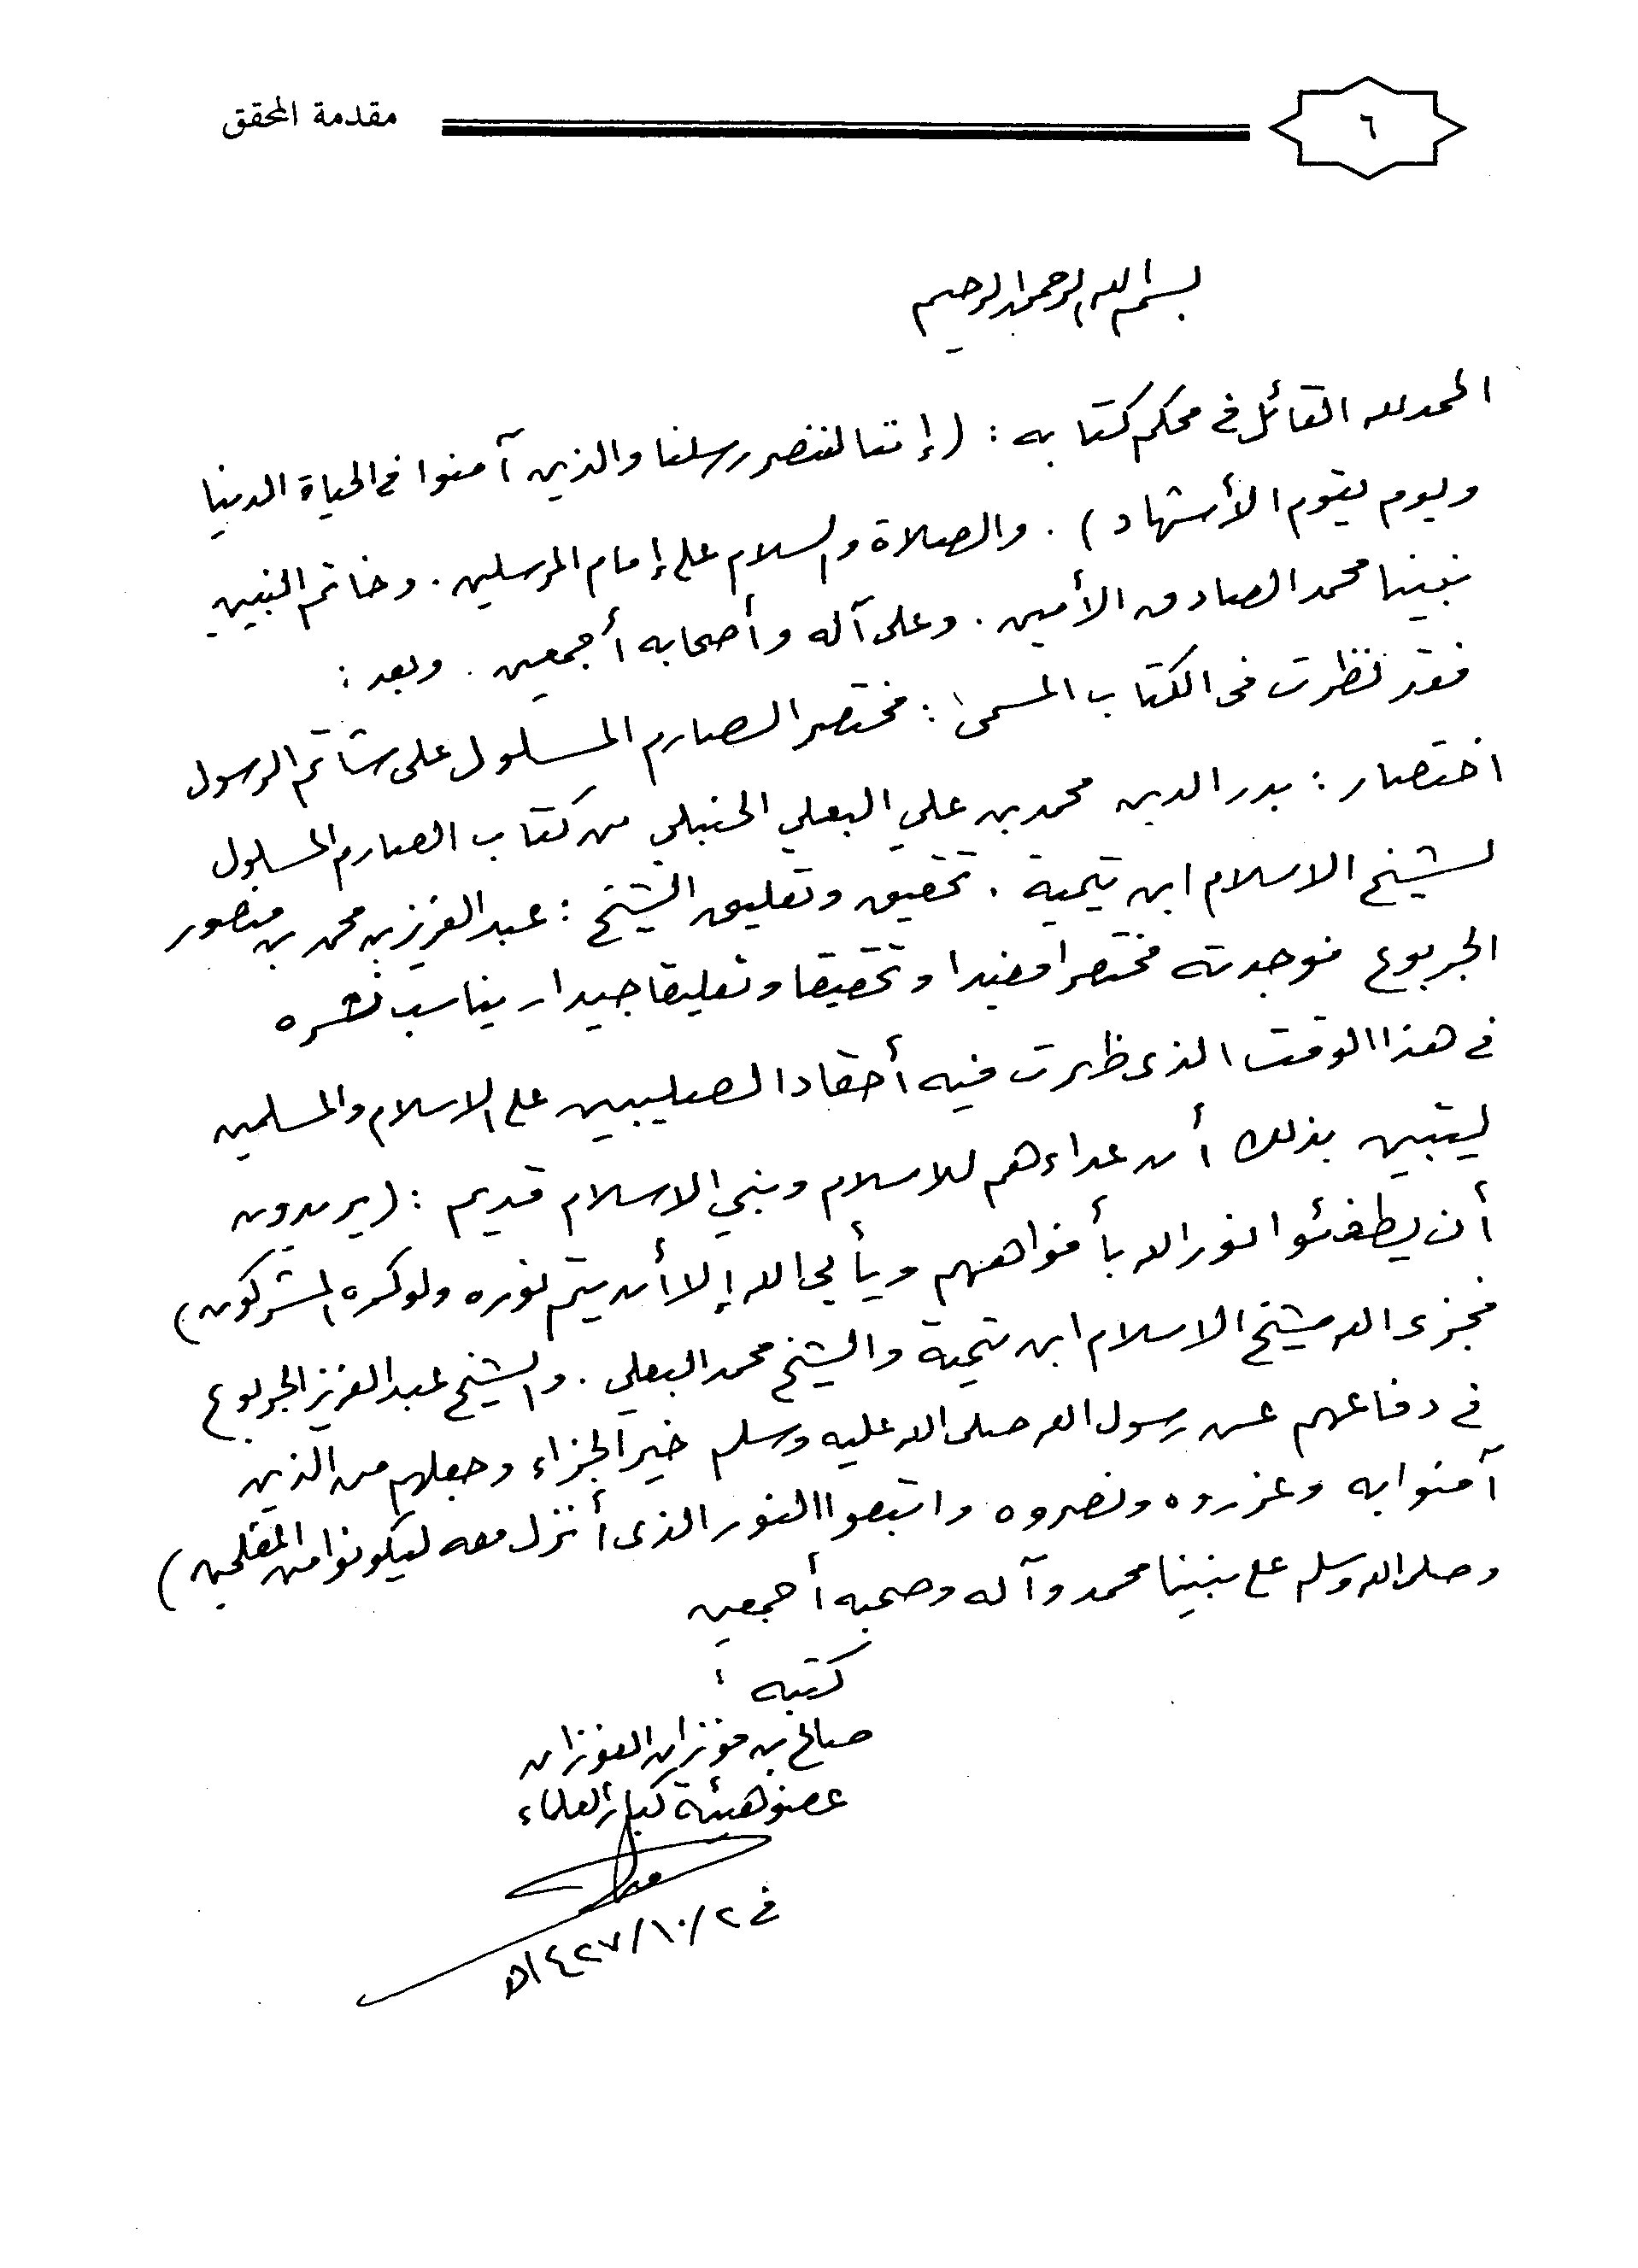 ٦
مقدمة المحقق
بسم الله الرحمن الرحيم
الحمد لله القائل في محكم كتابه : (إننا لننصر رسلنا والذين آمنوا في الحياة الدنيا
ويوم يقوم الأشهاد) . والصلاة والسلام على إمام المرسلين . وخاتم النبيين
نبينا محمد الصادق الأمين . وعلى آله وأصحابه أجمعين . وبعد :
فقد نظرت في الكتاب المسمى : مختصر الصارم المسلول على شاتم الرسول
اختصار : بدر الدين محمد بن علي البعلي الحنبلي من كتاب الصارم المسلول
لشيخ الاسلام ابن تيمية . تحقيق وتعليق الشيخ : عبد العزيز بن محمد بن منصور
الجربوع فوجدته مختصرا مفيدا وتحقيقا وتعليقا جيدا يناسب نشره
في هذا الوقت الذي ظهرت فيه أحقاد الصليبيين على الاسلام والمسلمين
ليتبين بذلك أن عداءهم للاسلام ونبي الاسلام قديم : (يريدون
أن يطفئوا نور الله بأفواههم ويأبى الله إلا أن يتم نوره ولو كره المشركون)
فجزى الله شيخ الاسلام ابن تيمية والشيخ محمد البعلي . والشيخ عبد العزيز الجربوع
في دفاعهم عن رسول الله صلى الله عليه وسلم خير الجزاء وجعلهم من الذين
آمنوا به وعزروه ونصروه واتبعوا النور الذي أنزل معه ليكونوا من المفلحين)
وصلى الله وسلم على نبينا محمد وآله وصحبه أجمعين
كتبه :
صالح بن فوزان الفوزان
عضو هيئة كبار العلماء
في ٢/١٠/١٤٢٧هـ